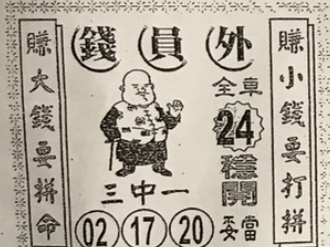 外員錢
賺小錢要打拼
全車
24
穩
開
當
委
三中一
02 17 20
賺大錢要拼命